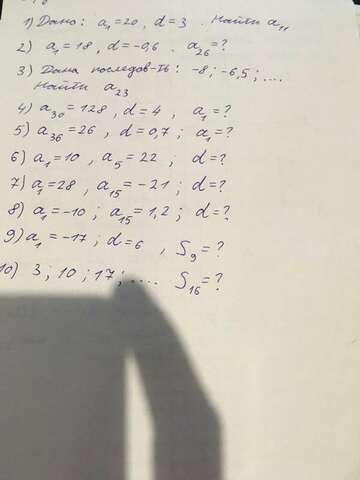 1) Дано: a₁ = 20, d = 3. Найти a₁₁
2) a₁ = 18, d = -0,6. a₂₆ = ?
3) Дана последов-ть: -8; -6,5; ....
Найти a₂₃
4) a₃₀ = 128, d = 4, a₁ = ?
5) a₃₆ = 26, d = 0,7; a₁ = ?
6) a₁ = 10, a₅ = 22; d = ?
7) a₁ = 28, a₁₅ = -21; d = ?
8) a₁ = -10; a₁₅ = 1,2; d = ?
9) a₁ = -17; d = 6, S₉ = ?
10) 3; 10; 17; .... S₁₆ = ?